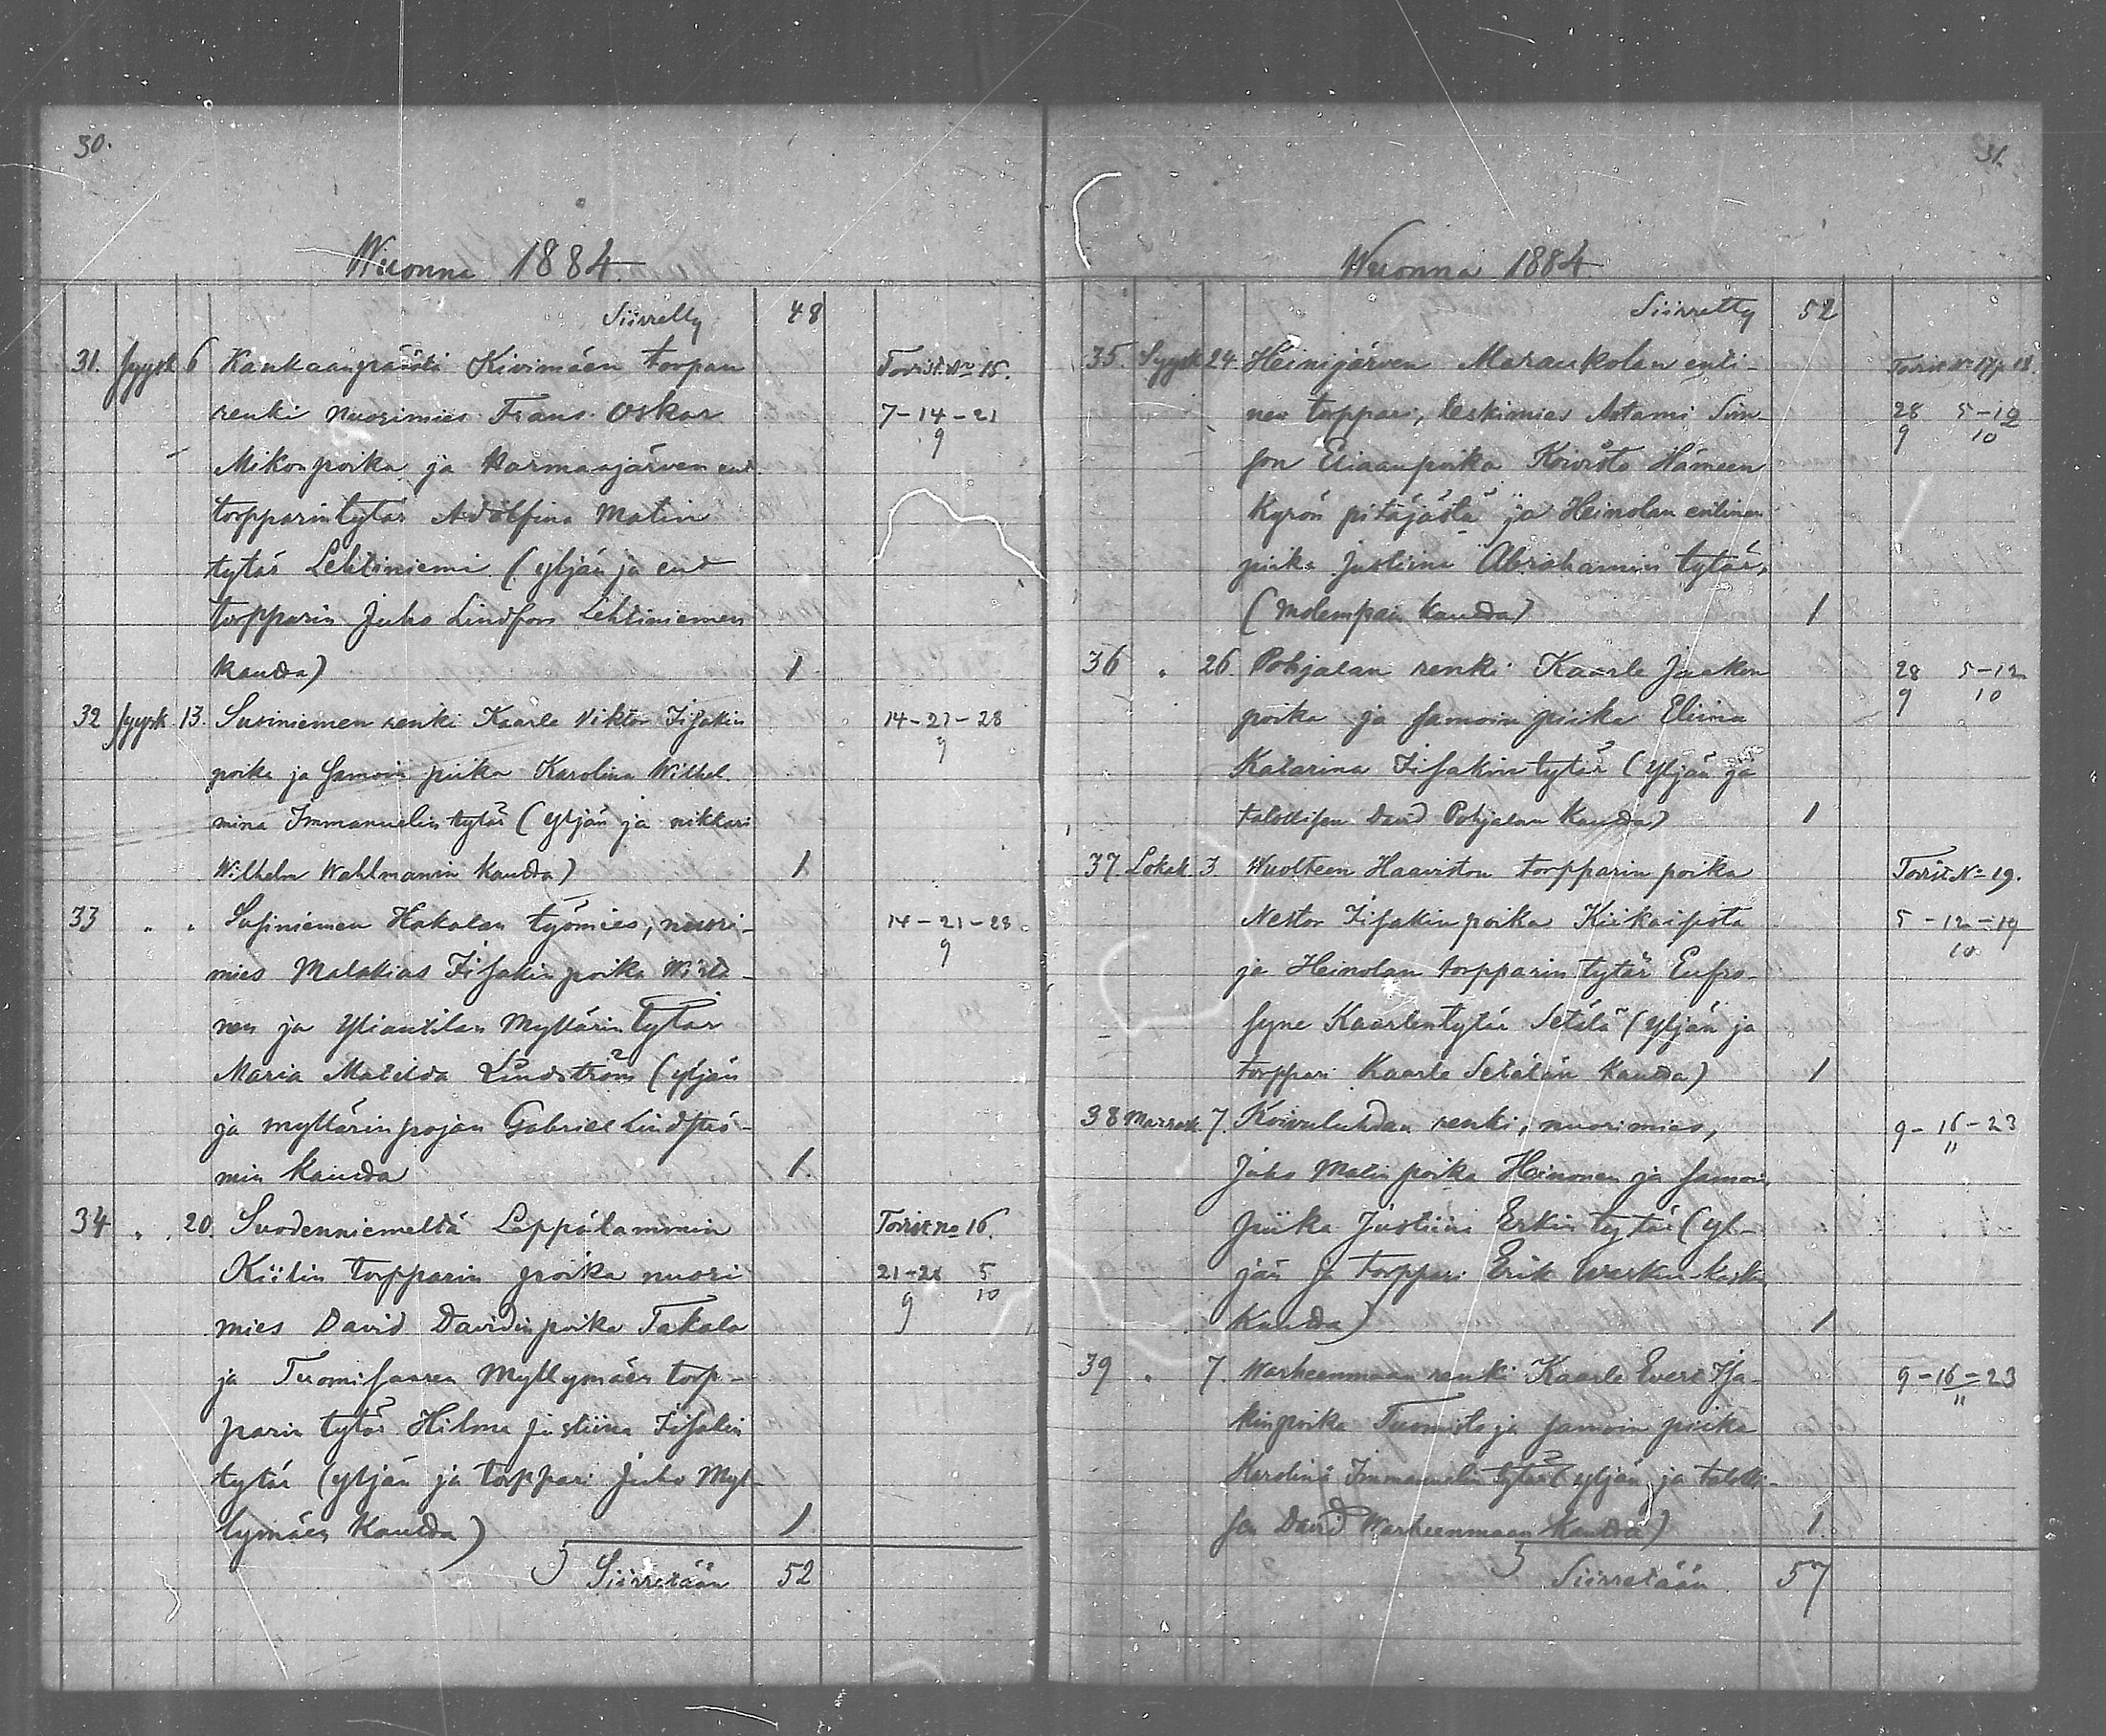 30.
Wuonna 1884
Siirretty 48
31. Syysk 6 Kankaanpäästä Kivimäen torpan Todist. No 15.
renki nuorimies Frans Oskar 7-14-21
Mikonpoika ja Karmasjärven ent 9
torpparintytär Adolfina Matin
tytär Lehtiniemi (yljän ja ent
torpparin Juho Lindfors Lehtiniemen
kautta) 1
32 Syysk 13. Susiniemen renki Kaarle Viktor Iisakin 14-21-28
poika ja samoin piika Karolina Wilhel 9
mina Immanuelin tytär (yljän ja nikkari
Wilhelm Wahlmanin kautta) 1
33 " " Susiniemen Hakalan työmies, nuori- 14-21-28.
mies Malakias Iisakin poika Wirta- 9
nen ja Yliantilan Myllärin tytär
Maria Matilda Lindström (yljän
ja myllärin pojan Gabriel Lindströ-
min kautta 1.
34 " 20. Suodenniemeltä Leppälammin Todist. no 16.
Kiilin torpparin poika nuori 21-28 5
mies David Davidinpoika Takala 9 10
ja Tuomisaaren Myllymäen torp-
parin tytär Hilma Justiina Iisakin
tytär (yljän ja torppari Juho Myl-
lymäen kautta) 1
Siirretään 52
31.
Wuonna 1884
Siirretty 52
35. Syysk 24. Heinijärven Maraukolan enti- Todist No 17 ja 18.
nen torppari, leskimies Aatami Sim- 28 5-12
son Eliaanpoika Koivisto Hämeen 9 10
Kyrön pitäjästä ja Heinolan entinen
piika Justiina Abrahamin tytär,
(Molempain kautta) 1
36 " 26. Pohjalan renki Kaarle Jaakon 28 5-12
poika ja samoin piika Eliina 9 10
Katarina Iisakin tytär (yljän ja
talollisen David Pohjalan kautta) 1
37 Lokak 3 Wuolteen Haaviston torpparin poika Todist No 19.
Nestor Iisakin poika Kiikaisista 5-12-19
ja Heinolan torpparin tytär Eufro- 10
syne Kaarlentytär Setälä (yljän ja
torppari Kaarle Setälän kautta) 1
38 Marrask 7. Koivulahdan renki, nuorimies, 9-16-23
Juho Matin poika Heinonen ja samoin 11
piika Justiina Erkin tytär (yl-
jän ja torppari Erik
kautta) 1
39 " 7. Warheenmaan renki Kaarle Evert Isa- 9-16-23
kinpoika Tuomisto ja samoin piika 11
Karolina Immanuelin tytär (yljän ja talolli-
sen David Warheenmaan kautta) 1.
Siirretään 57